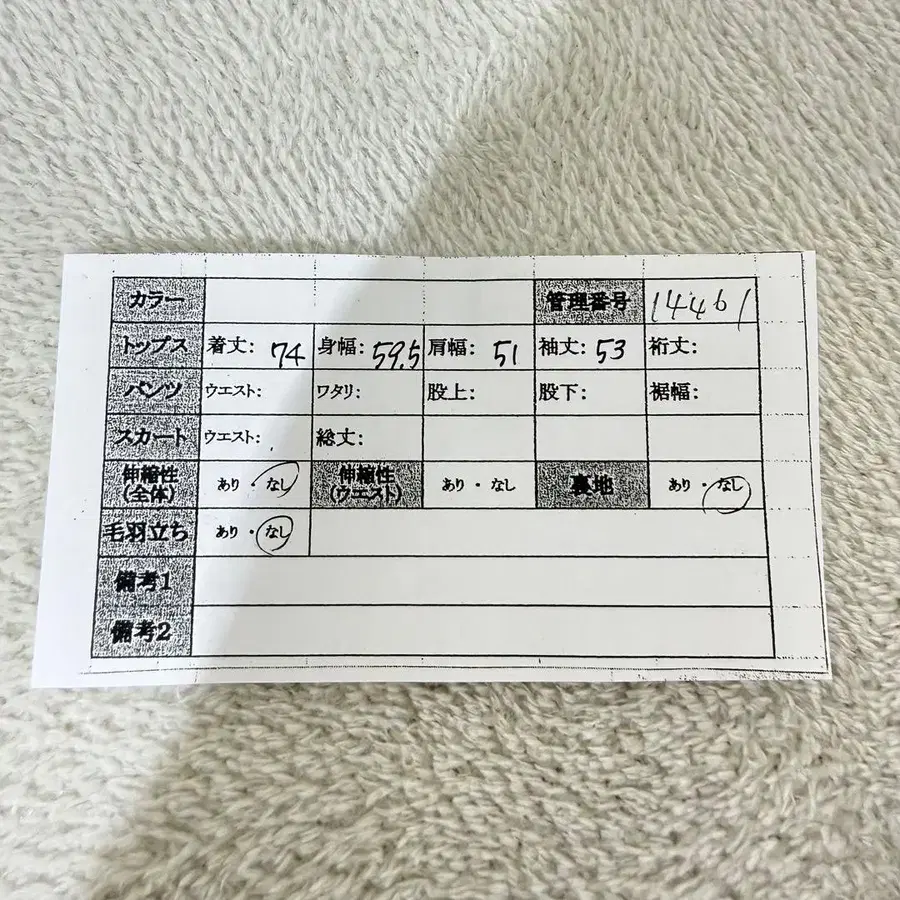 カラー 管理番号 14461
トップス 着丈: 74 身幅: 59.5 肩幅: 51 袖丈: 53 裄丈:
パンツ ウエスト: ワタリ: 股上: 股下: 裾幅:
スカート ウエスト: 総丈:
伸縮性(全体) あり・なし 伸縮性(ウエスト) あり・なし 裏地 あり・なし
毛羽立ち あり・なし
備考1
備考2